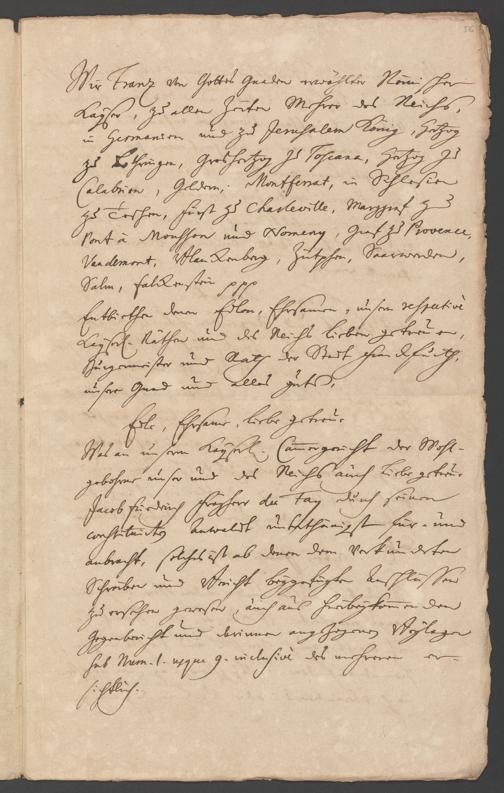 56
Wir Franz von Gottes Gnaden erwählter Römischer
Kayser, zu allen Zeiten Mehrer des Reichs,
in Germanien und zu Jerusalem König, Hertzog
zu Lothringen, Großhertzog zu Toscana, Hertzog zu
Calabrien, Geldern, Montferrat, in Schlesien
zu Teschen, Fürst zu Charleville, Marggraf zu
Pont à Mousson und Nomeny, Graf zu Provence,
Vaudemont, Blanckenberg, Zütphen, Saarwerden,
Salm, Falckenstein ppp
Entbiethen denen Edlen, Ehrsamen, unsern respective
Kayserl. Räthen und des Reichs lieben getreuen,
Burgermeister und Rath der Stadt Franckfurth,
unsere Gnad und alles guts.
Edle, Ehrsame, liebe getreue
Was an unserm Kayserl. Cammergericht der Wohl-
gebohrne unser und des Reichs auch liebe getreue
Jacob Friedrich Freyherr du Fay durch seinen
constituirten Anwaldt unterthänigst für- und
anbracht, solches ist ab denen dem verkündeten
Schreiben und Bericht beygefügten Anschlüssen
zu ersehen gewesen, auch aus hierbeykommenden
Gegenbericht und darinnen angezogenen Beylagen
sub Num. 1. usque 9. inclusive des mehreren er-
sichtlich.